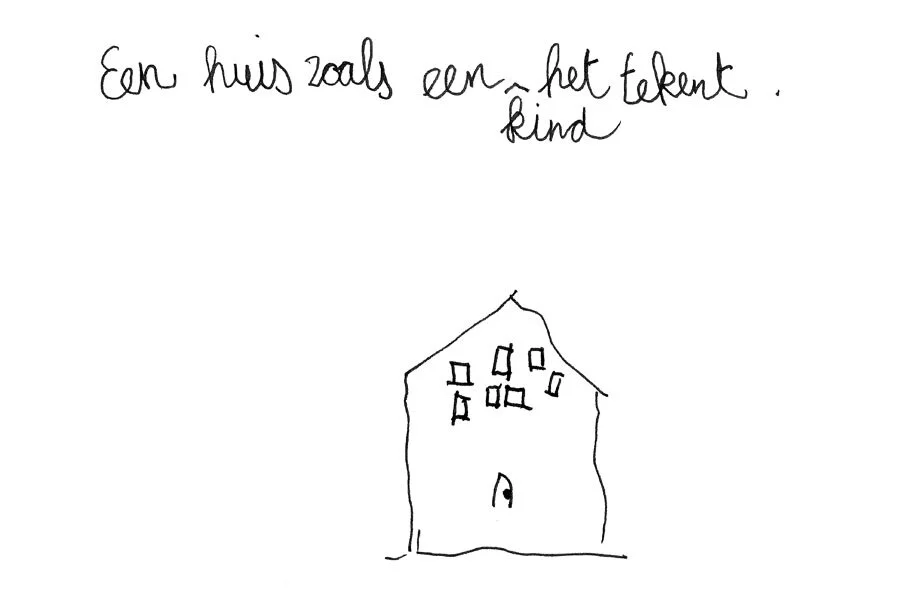 Een huis zoals een ^ het tekent.
kind